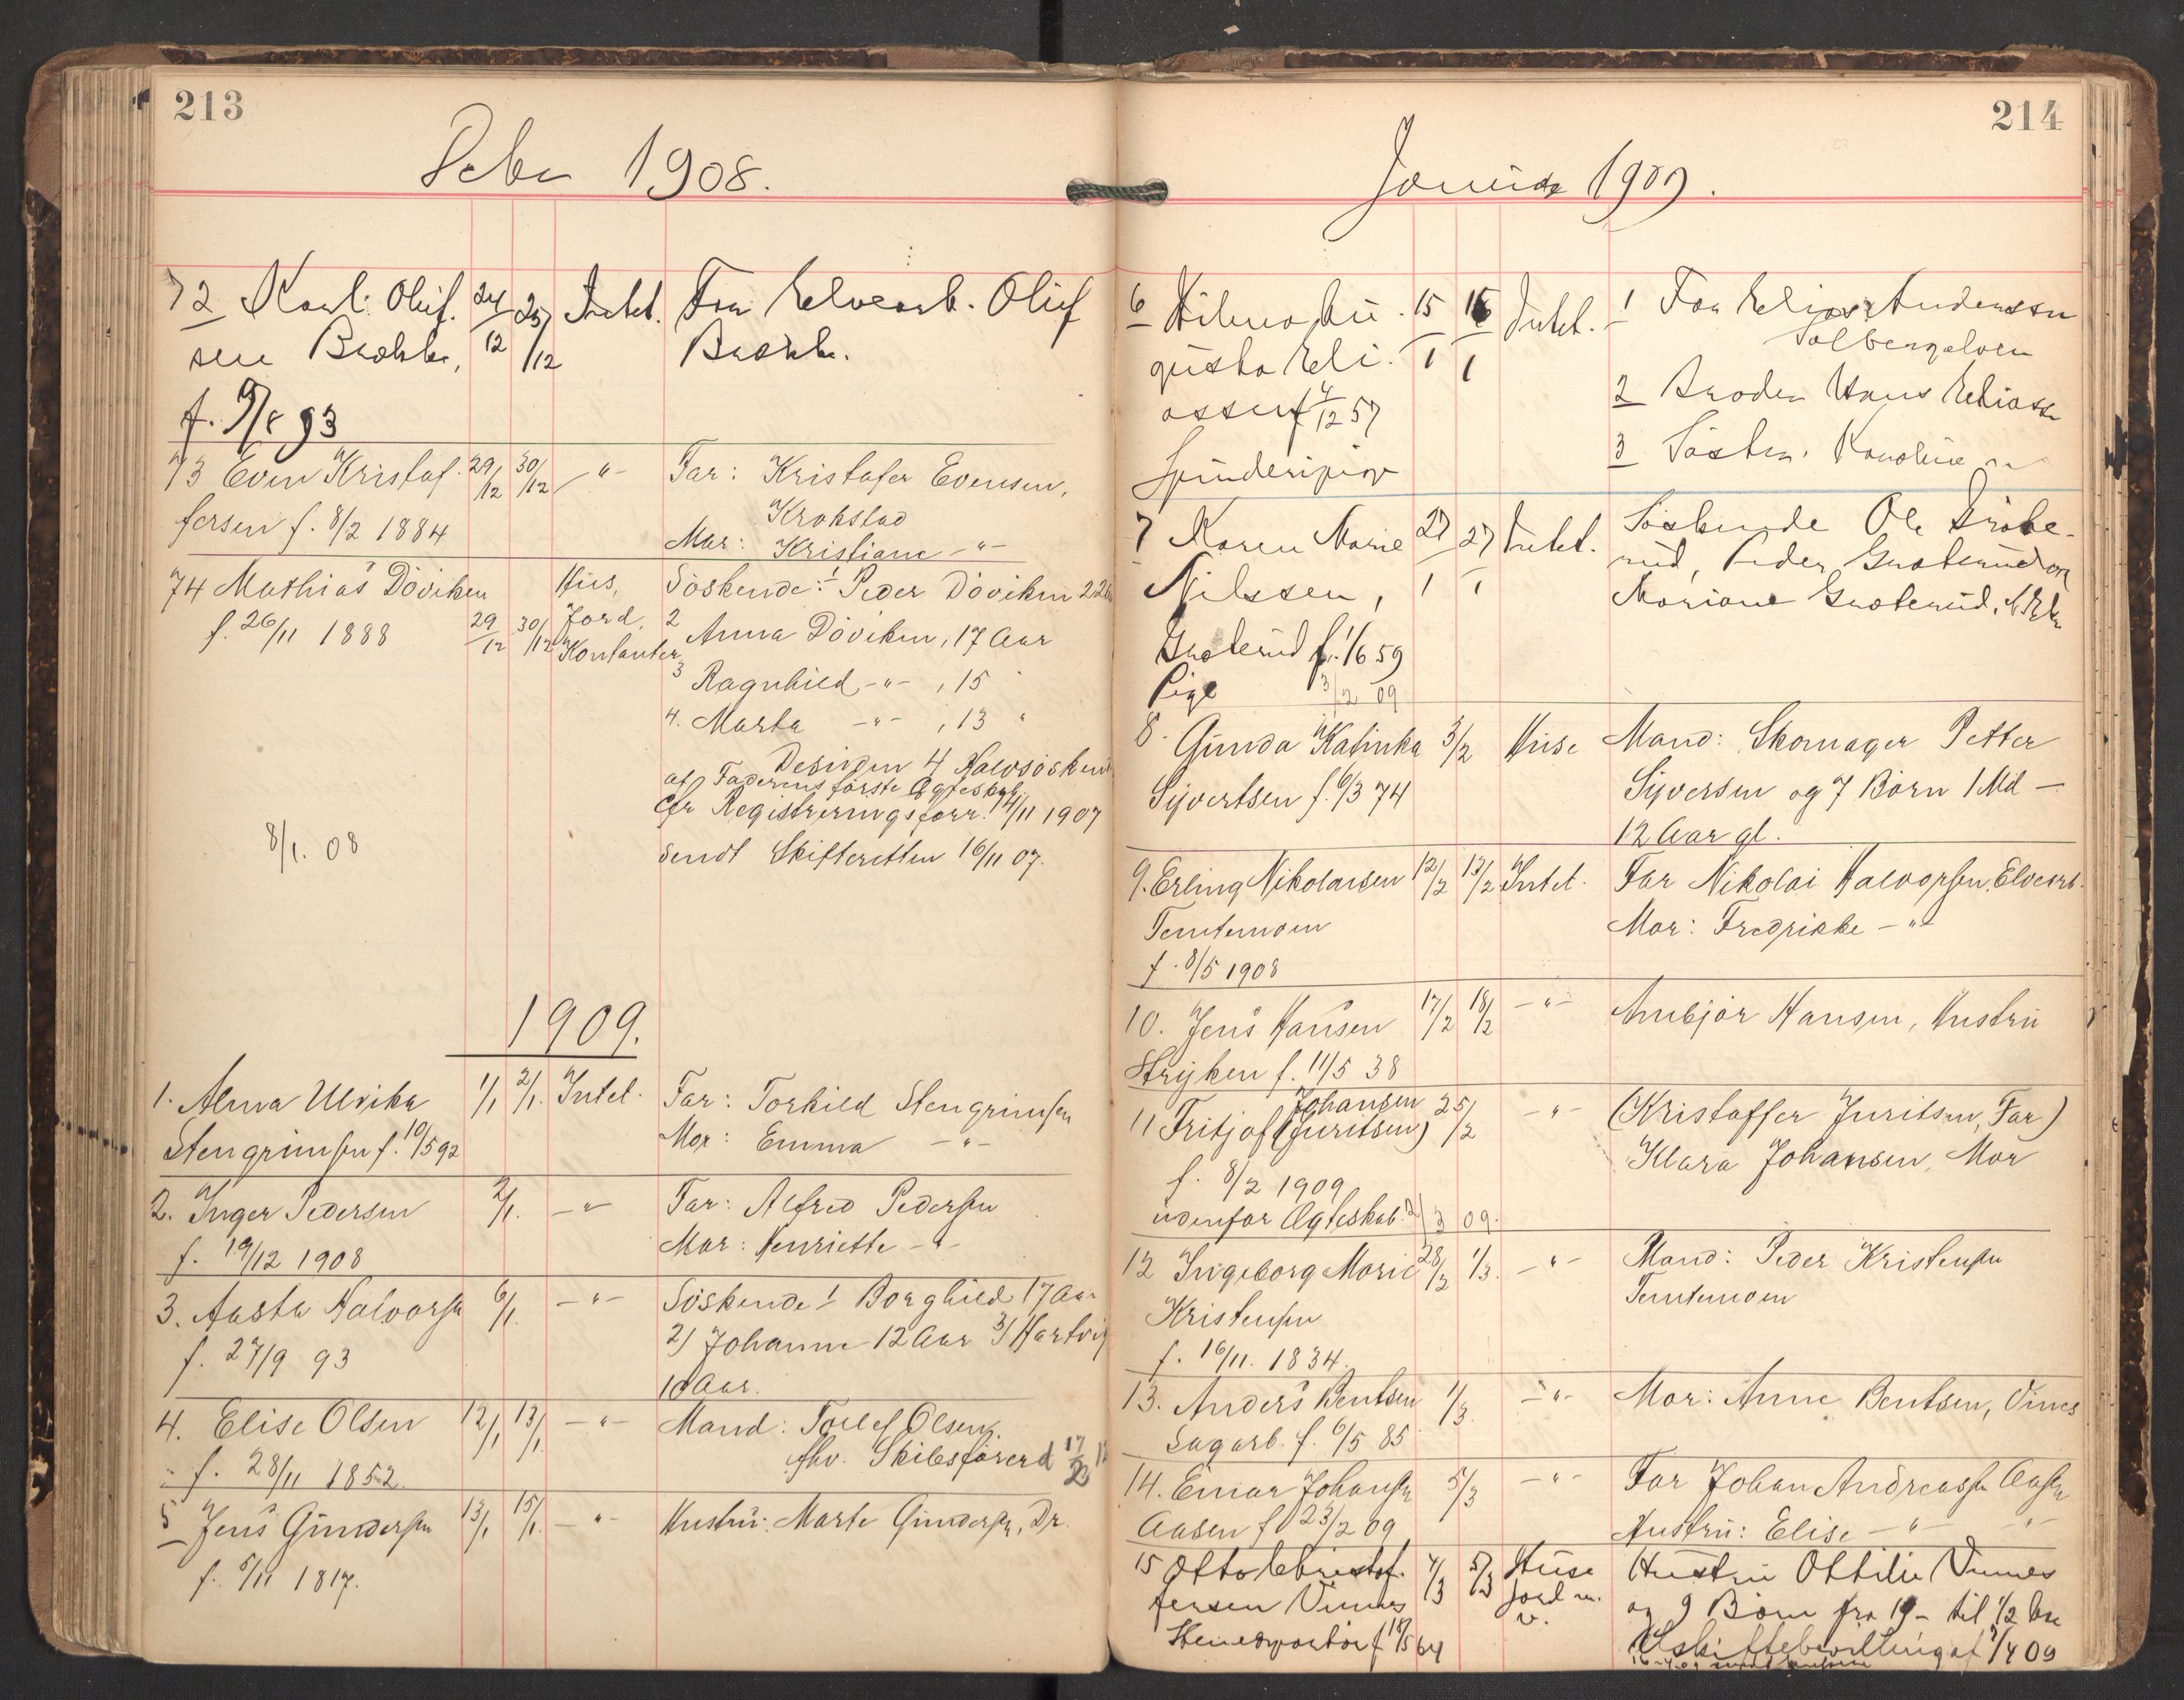 213
Decbr 1908.
72 Karl Oluf- 24/12 25/12 Intet. Far Elvearb. Oluf
sen Brekke, Brekke.
f. 9/8 93
73 Even Kristof- 29/12 30/12 -"- Far: Kristofer Evensen,
fersen f. 8/2 1884 Krokstad
Mor: Kristiane -"-
74 Mathias Döviken Hus, Söskende: 1 Peder Döviken 22
f. 26/11 1888 29/12 30/12 Jord, 2 Anna Döviken, 17 Aar
Kontanter
3 Ragnhild -"- , 15 "
4. Marta -"- , 13 "
Desuden 4 Halvsöskend
af Faderens förste Ægteskab.
cfr Registreringsforr. 14/11 1907
8/1. 08
sendt Skifteretten 16/11 07.
1909.
1. Alma Ulrika 1/1 2/1. Intet. Far: Torkild Stengrimsen
Stengrimsen f. 10/5 92 Mor: Emma -"-
2. Inger Pedersen 2/1. -"- Far: Alfred Pedersen
f. 19/12 1908 Mor: Henriette -"-
3. Aasta Halvorsen 6/1. -"- Söskende 1 Borghild 17 Aar
f. 27/9 93 2) Johanne 12 Aar 3) Hartvig
10 Aar.
4. Elise Olsen 12/1 13/1. -"- Mand: Tollef Olsen,
f. 28/11 1852. fhv. Skibsförer
5 Jens Gundersen 13/1 15/1. -"- Hustru: Marte Gundersen, Dr.
f. 5/11 1817.
214
Januar 1909.
6 Hilma Au- 15/1 16/1 Intet. 1 Far Elias Anderssen
gusta Eli- Solbergelven
assen f 4/12 57 2 Broder Hans Eliassen
3 Söster Karoline -"-
7 Karen Marie 27/1 27/1 Intet. Söskende Ole Gröte-
Nilssen, rud, Peder Groterud og
Groterud f. 1/6 59 Mariane Groterud,
Pige 3/2 09
8. Gunda Katinka 3/2 Huse Mand: Skomager Petter
Syvertsen f. 6/3 74 Syversen og 7 Börn 1 Md -
12 Aar gl.
9. Erling Nikolaisen 12/2 13/2 Intet. Far Nikolai Halvorsen, Elvearb.
Temtemoen Mor: Fredrikke -"-
f. 8/5 1908
10. Jens Hansen 17/2 18/2 -"- Anbjör Hansen, Hustru
Stryken f. 11/5 38
Johansen
11 Fritjof (Juritsen) 25/2 -"- (Kristoffer Juritsen, Far)
f. 8/2 1909 Klara Johansen, Mor
udenfor Ægteskab. 2/3 09.
12 Ingeborg Marie 28/2 1/3. -"- Mand: Peder Kristensen
Kristensen Temtemoen
f. 16/11. 1834.
13. Anders Bentsen 1/3. -"- Mor: Anne Bentsen, Vines
Sagarb. f. 6/5 85
14. Einar Johansen 5/3 -"- Far Johan Andreassen Aasen
Aasen f 23/2 09 Hustru: Elise -"- -"-
15 Otto Christof- 4/3 5/3 Huse Hustru Ottilie Vinnes
fersen Vinnes Jord m. og 9 Börn fra 19 - til 1/2
v.
f 18/5 64 Uskiftebevilling af 1/4 09